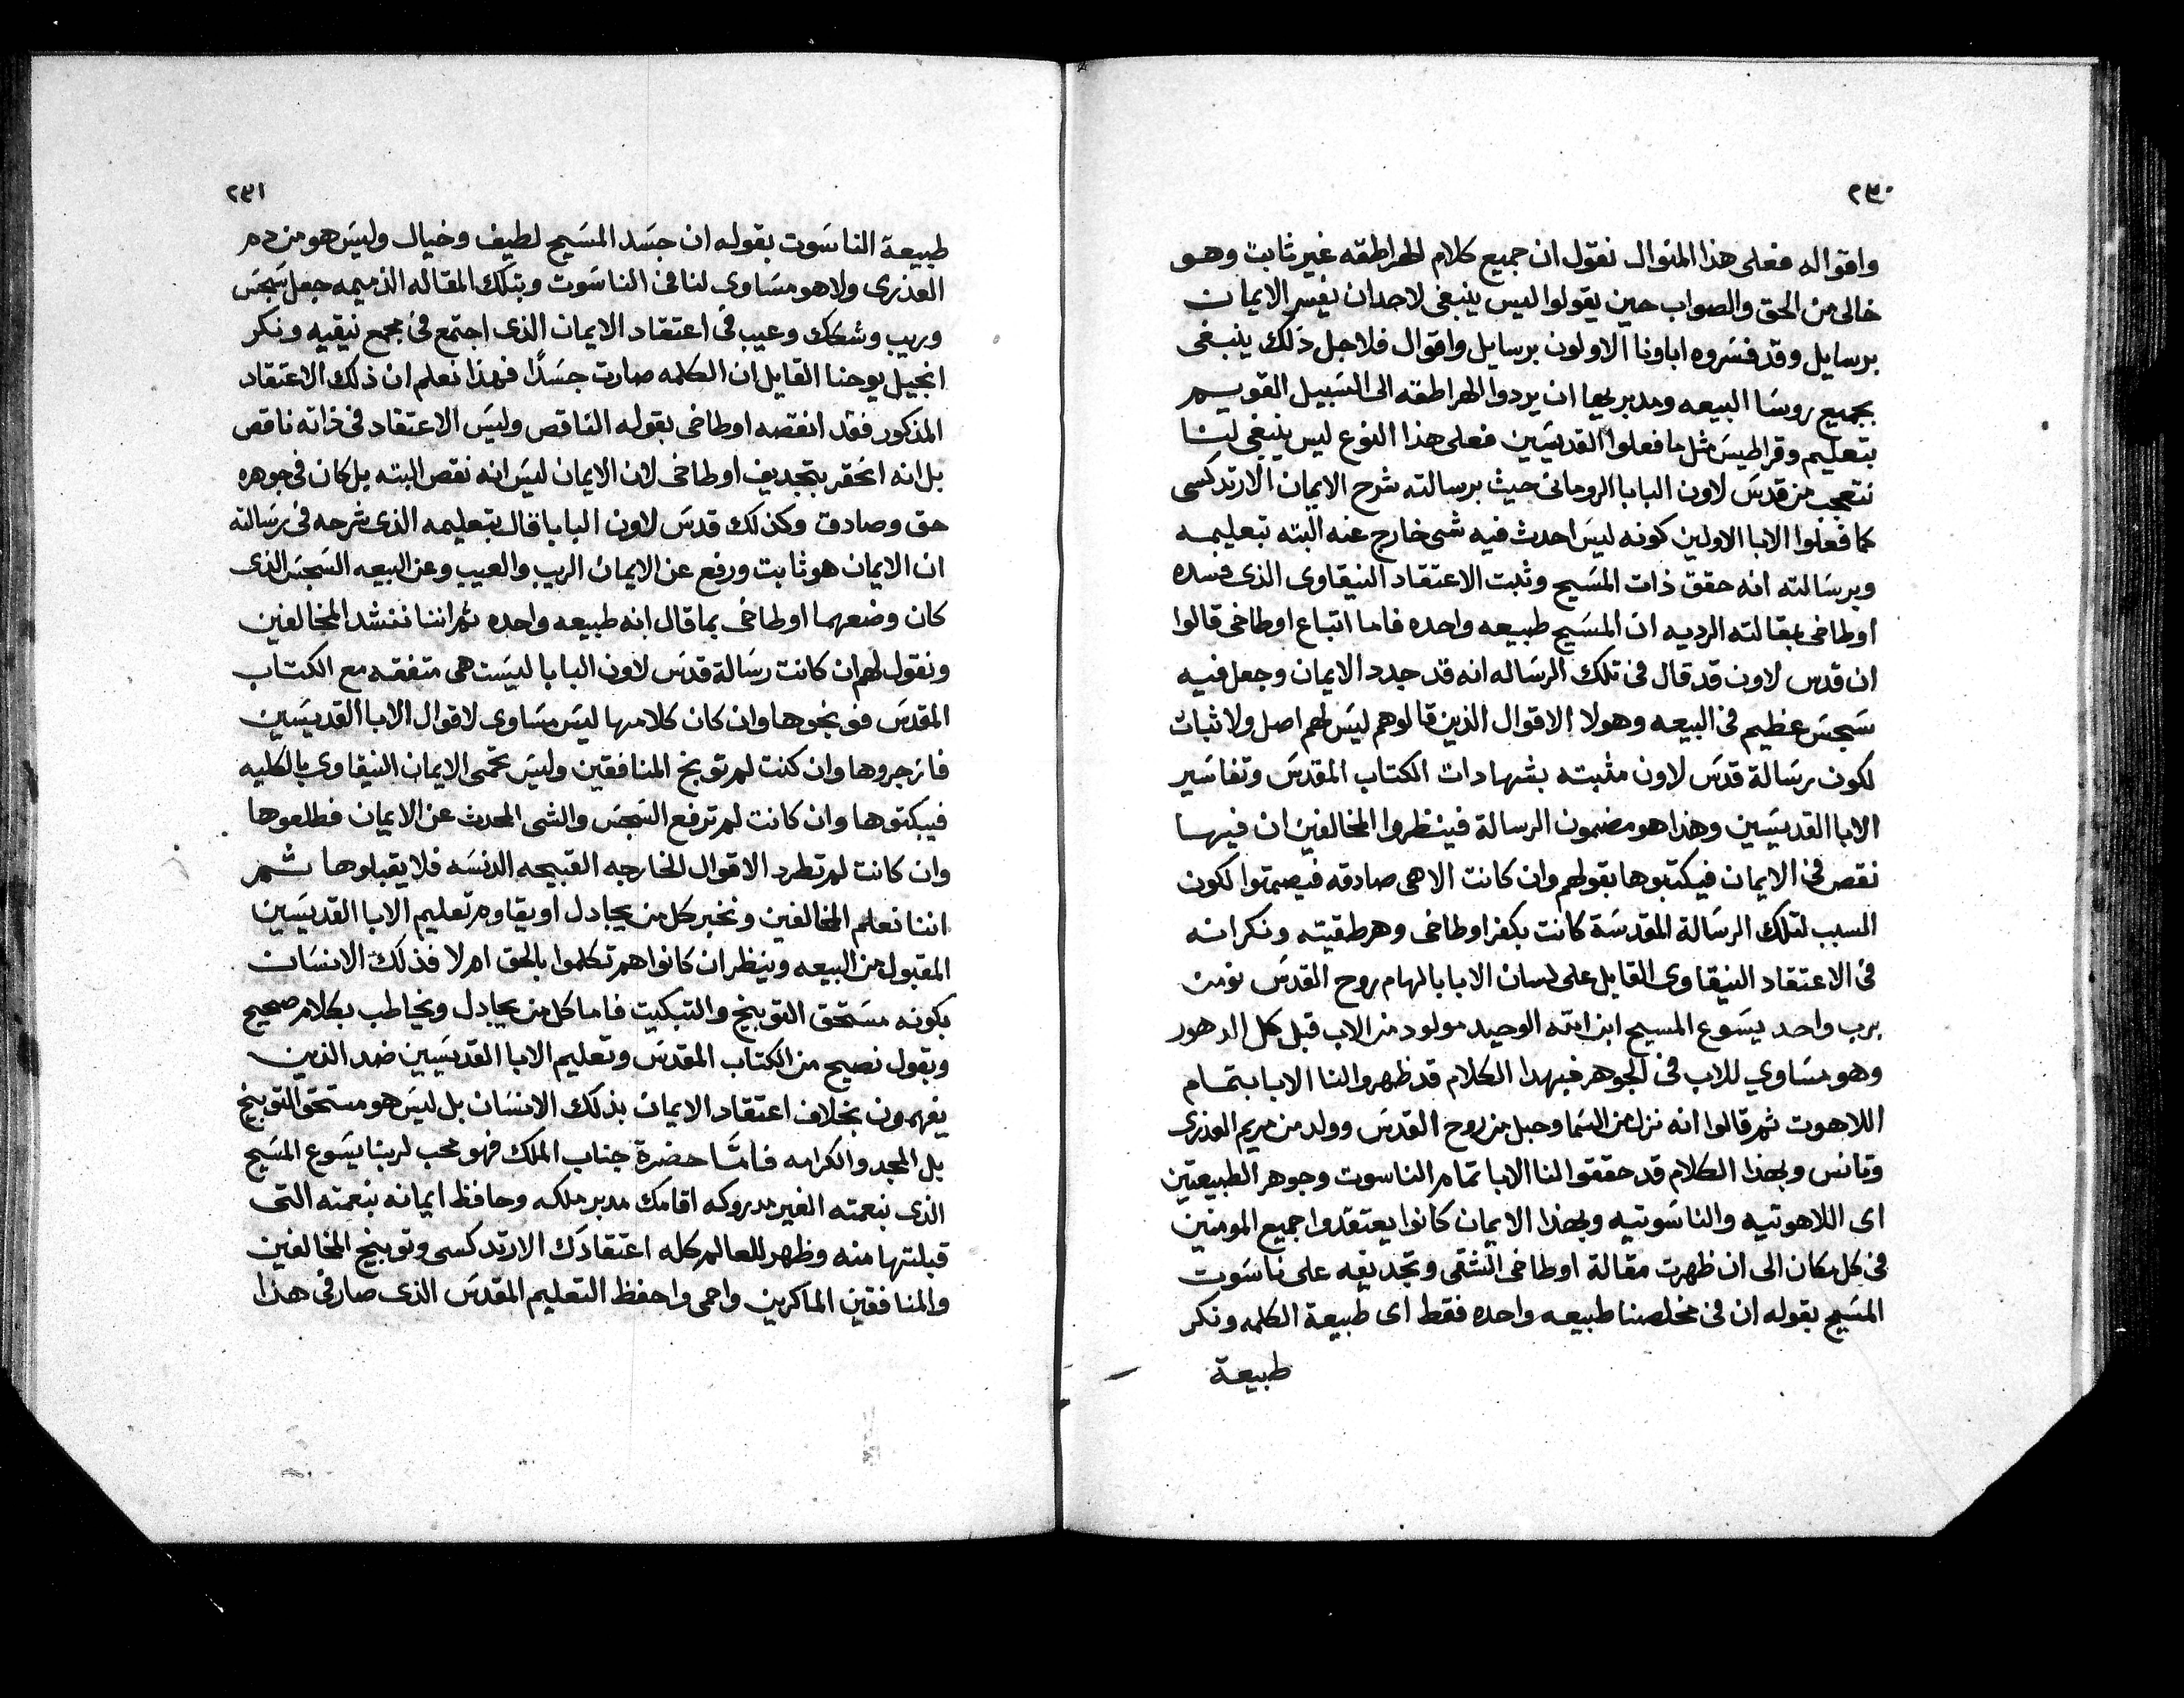 ٢٣٠
واقواله فعلى هذا المنوال نقول ان جميع كلام الهراطقه غير ثابت وهو
خالى من الحق والصواب حين يقولوا ليس ينبغى لاحد ان يفسر الايمان
برسايل وقد فسروه اباونا الاولون برسايل واقوال فلاجل ذلك ينبغى
بجميع روسا البيعه ومدبريها ان يردوا الهراطقه الى السبيل القويم
بتعليم وقراطيس مثل ما فعلوا القديسين فعلى هذا النوع ليس ينبغى لنا
نتعجب من قدس لاون البابا الرومانى حيث برسالته شرح الايمان الارتدكسى
كما فعلوا الابا الاولين كونه ليس احدث فيه شى خارج عنه البته تبعليمه
وبرسالته انه حقق ذات المسيح وثبت الاعتقاد النيقاوى الذى فسده
اوطاخى بمقالته الرديه ان المسيح طبيعه واحده فاما اتباع اوطاخى قالوا
ان قدس لاون قد قال فى تلك الرساله انه قد جدد الايمان وجعل فيه
سجس عظيم فى البيعه وهولا الاقوال الذين قالوهم ليس لهم اصل ولا ثبات
لكون رسالة قدس لاون مثبته بشهادات الكتاب المقدس وتفاسير
الابا القديسين وهذا هو مضمون الرسالة فينظروا المخالفين ان فيها
نقص فى الايمان فيكتبوها بقولهم وان كانت الاهى صادقه فيصمتوا لكون
السبب لتلك الرسالة المقدسة كانت بكفر اوطاخى وهرطقيته ونكرانه
فى الاعتقاد النيقاوى القايل على لسان الابا بالهام روح القدس نومن
برب واحد يسوع المسيح ابن الله الوحيد مولود من الاب قبل كل الدهور
وهو مساوي للاب فى الجوهر فبهدا الكلام قد ظهروا لنا الابا بتمام
اللاهوت ثم قالوا انه نزل من السما وحبل من روح القدس وولد من مريم العذرى
وتانس وبهذا الكلام قد حققوا لنا الابا تمام الناسوت وجوهر الطبيعتين
اى اللاهوتيه والناسوتيه وبهذا الايمان كانوا يعتقدوا جميع المومنين
فى كل مكان الى ان ظهرت مقالة اوطاخى الشقى وتجديفه على ناسوت
المسيح بقوله ان فى مخلصنا طبيعه واحده فقط اى طبيعة الكلمه ونكر
طبيعة
٢٣١
طبيعة الناسوت بقوله ان جسد المسيح لطيف وخيال وليس هو من دم
العذرى ولا هو مساوى لنا فى الناسوت وبتلك المقاله الذميمه جعل سجس
وريب وشكك وعيب فى اعتقاد الايمان الذى اجتمع فى مجمع نيقيه ونكر
انجيل يوحنا القايل ان الكلمه صارت جسدًا فهذا نعلم ان ذلك الاعتقاد
المذكور فقد انقصه اوطاخى بقوله الناقص وليس الاعتقاد فى ذاته ناقص
بل انه انحقر بتجديف اوطاخى لان الايمان ليس انه نقص البته بل كان فى جوهره
حق وصادق وكذلك قدس لاون البابا قال بتعليمه الذى شرحه فى رسالته
ان الايمان هو ثابت ورفع عن الايمان الريب والعيب وعن البيعه السجس الذى
كان وضعهما اوطاخى بما قال انه طبيعه واحده ثم اننا ننشد المخالفين
ونقول لهم ان كانت رسالة قدس لاون البابا ليست هى متفقه مع الكتاب
المقدس فوبخوها وان كان كلامها ليس مساوى لاقوال الابا القديسين
فازجروها وان كنت لم توبخ المنافقين وليس تحمى الايمان النيقاوي بالكليه
فيبكتوها وان كانت لم ترفع السجس والشى المحدث عن الايمان فطلعوها
وان كانت لم تطرد الاقوال الخارجه القبيحه الدنسه فلا يقبلوها ثم
اننا نعلم المخالفين ونخبر كل من يجادل او يقاوم تعليم الابا القديسين
المقبول من البيعه وينظر ان كانوا هم تكلموا بالحق ام لا فذلك الانسان
بكونه مستحق التوبيخ والتبكيت فاما كل من يجادل ويخاطب بكلام صحيح
وبقول نصيح من الكتاب المقدس وتعليم الابا القديسين ضد الذين
يفهمون بخلاف اعتقاد الايمان بذلك الانسان بل ليس هو مستحق التوبيخ
بل المجد والكرامه فامّا حضرة جناب الملك فهو محب لربنا يسوع المسيح
الذى بنعمته الغير مدروكه اقامك مدبر ملكه وحافظ ايمانه بنعمته التى
قبلتها منه وظهر للعالم كله اعتقادك الارتدكسى وتوبيخ المخالفين
والمنافقين الماكرين واحمى واحفظ التعليم المقدس الذى صار فى هذا